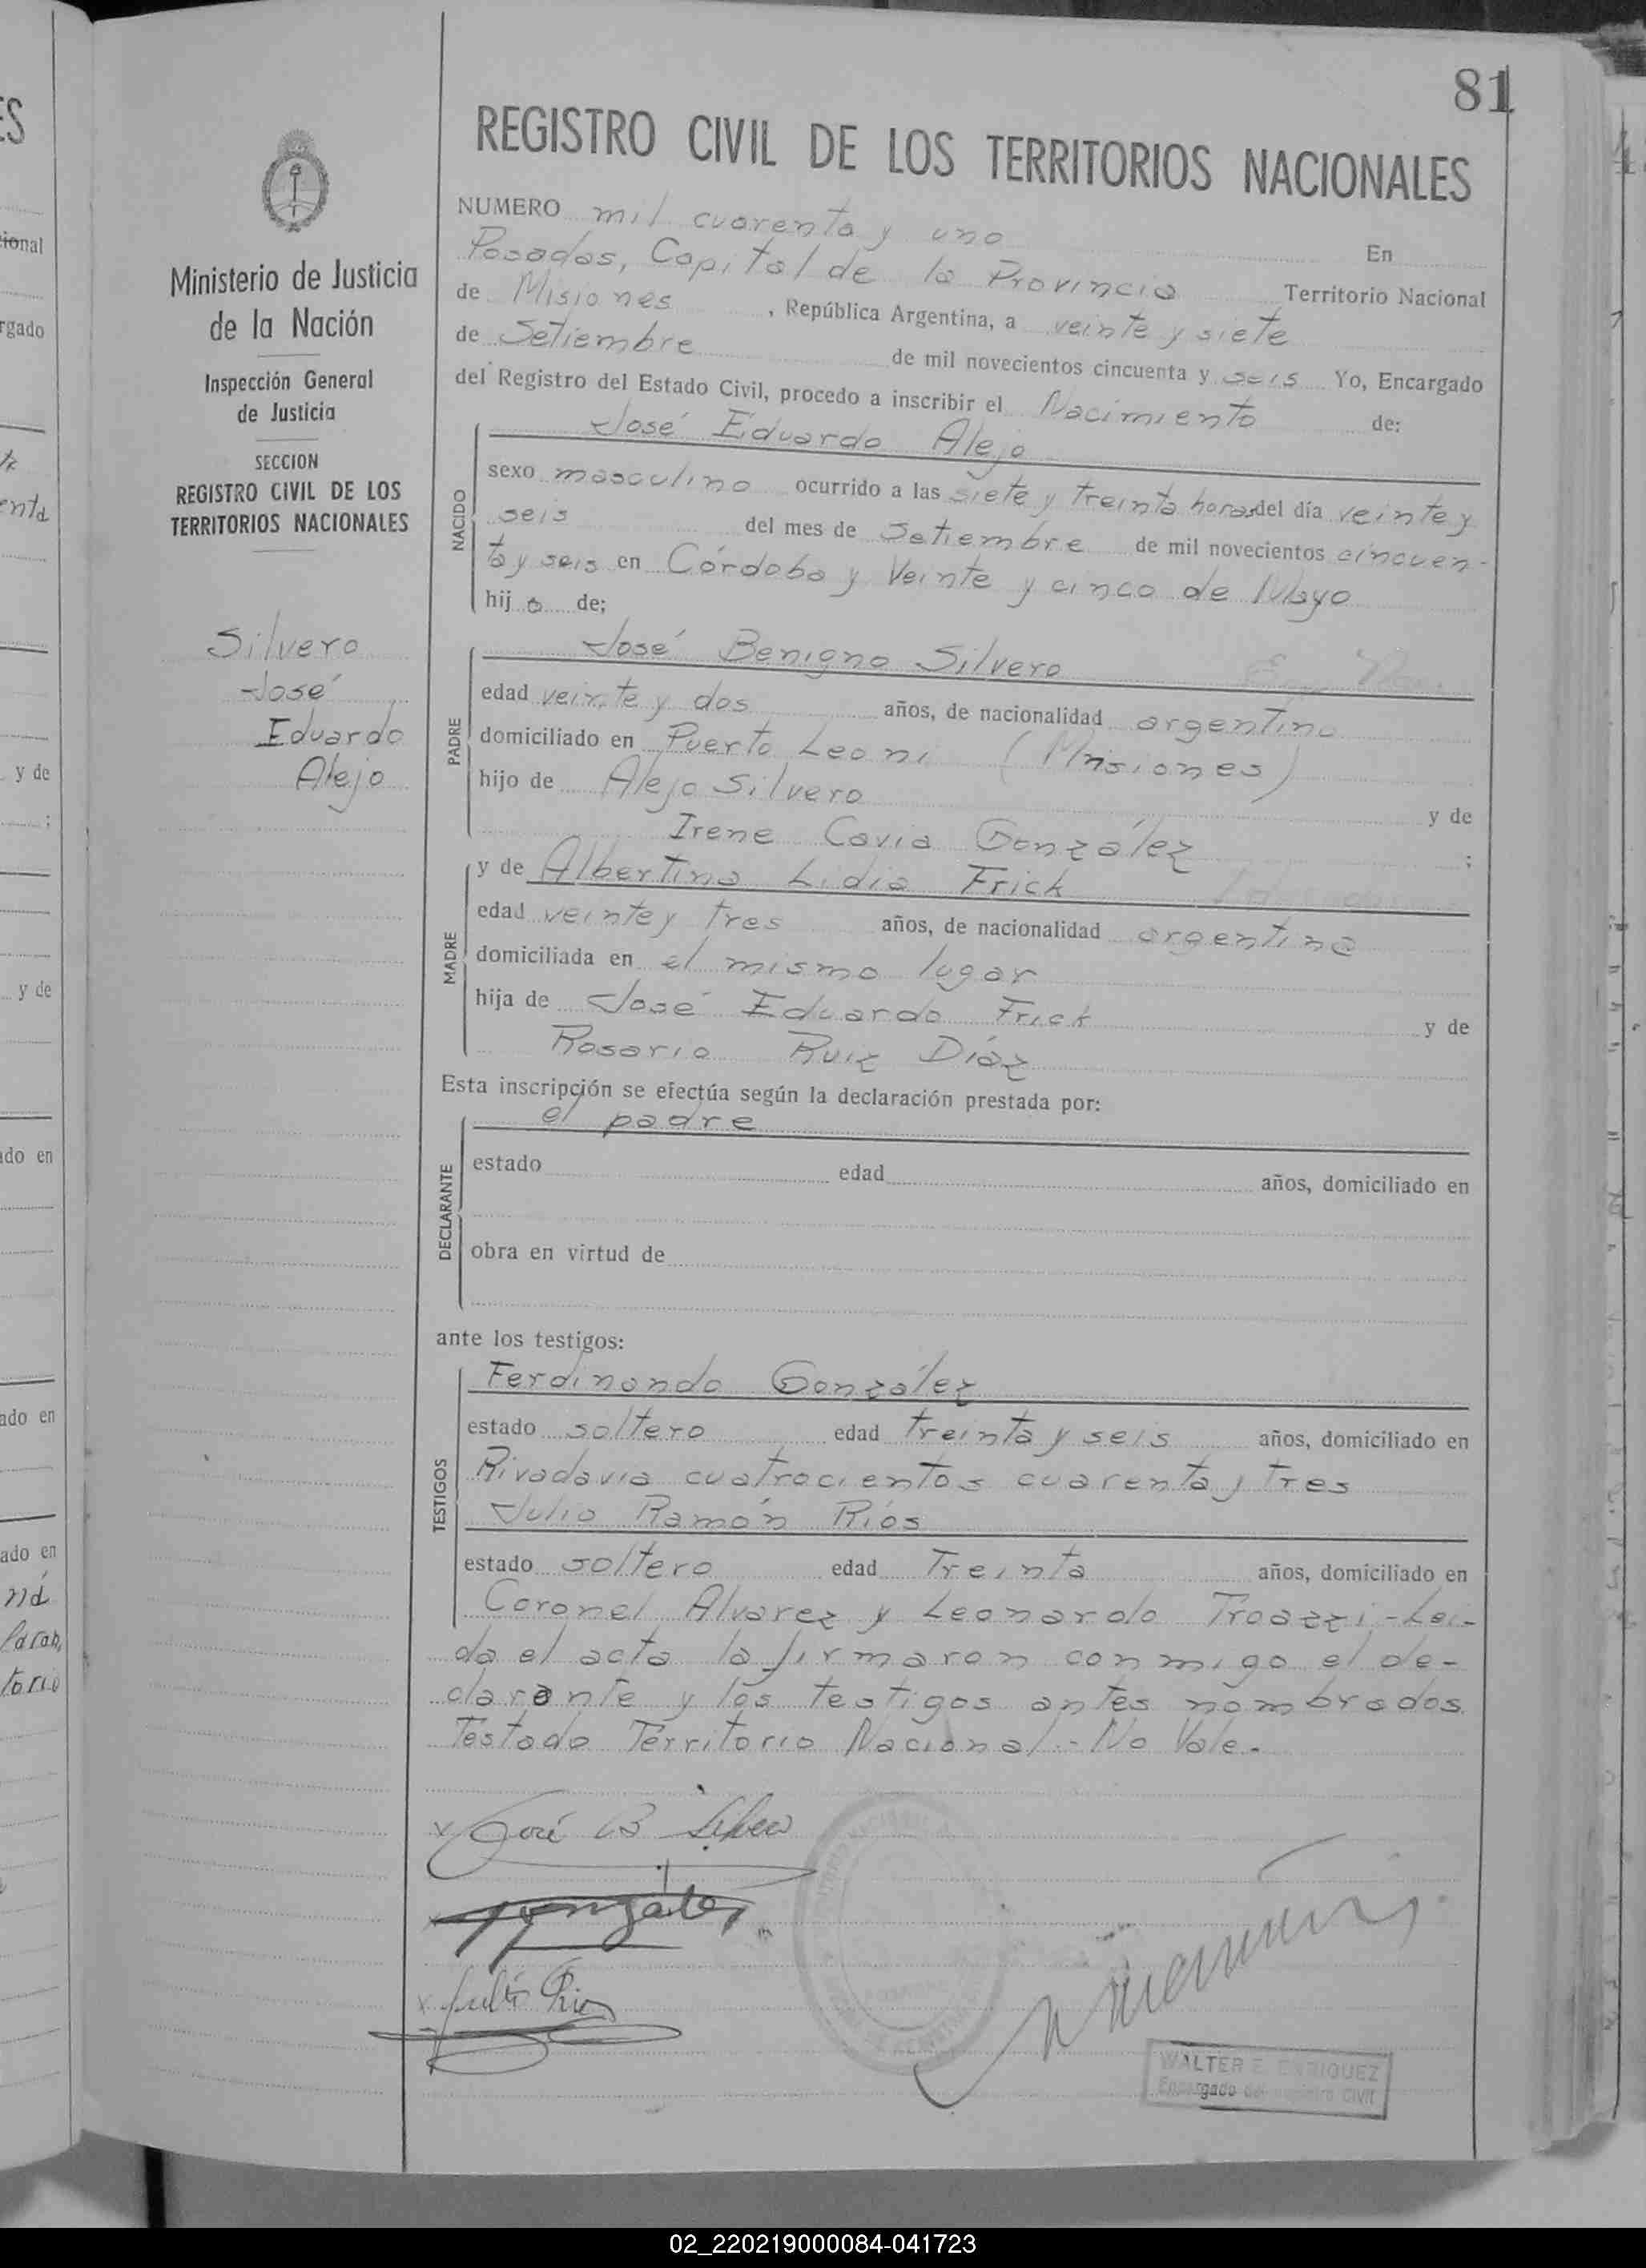 81
REGISTRO CIVIL DE LOS TERRITORIOS NACIONALES
Ministerio de Justicia
de la Nación
Inspección General
de Justicia
SECCION
REGISTRO CIVIL DE LOS
TERRITORIOS NACIONALES
Silvero
José
Eduardo
Alejo
NUMERO mil cuarenta y uno En
Posadas, Capital de la Provincia Territorio Nacional
de Misiones, República Argentina, a veinte y siete
de Setiembre de mil novecientos cincuenta y seis Yo, Encargado
del Registro del Estado Civil, procedo a inscribir el Nacimiento de:
José Eduardo Alejo
NACIDO
sexo masculino ocurrido a las siete y treinta horas del día veinte y
seis del mes de Setiembre de mil novecientos cincuen-
ta y seis en Córdoba y Veinte y cinco de Mayo
hijo de;
José Benigno Silvero
PADRE
edad veinte y dos años, de nacionalidad argentino
domiciliado en Puerto Leoni (Misiones)
hijo de Alejo Silvero y de
Irene Cavia González ;
y de Albertina Lidia Frick
MADRE
edad veinte y tres años, de nacionalidad argentina
domiciliada en el mismo lugar
hija de José Eduardo Frick y de
Rosario Ruiz Díaz
Esta inscripción se efectúa según la declaración prestada por:
el padre
DECLARANTE
estado edad años, domiciliado en
obra en virtud de
ante los testigos:
Ferdinando González
TESTIGOS
estado soltero edad treinta y seis años, domiciliado en
Rivadavia cuatrocientos cuarenta y tres
Julio Ramón Ríos
estado soltero edad Treinta años, domiciliado en
Coronel Alvarez y Leonardo Troazzi - Lei-
da el acta la firmaron conmigo el de-
clarante y los testigos antes nombrados
Testado Territorio Nacional - No Vale.
José B Silvero
González
Julio Rios
WALTER E. ENRIQUEZ
Encargado del Registro Civil
02_220219000084-041723